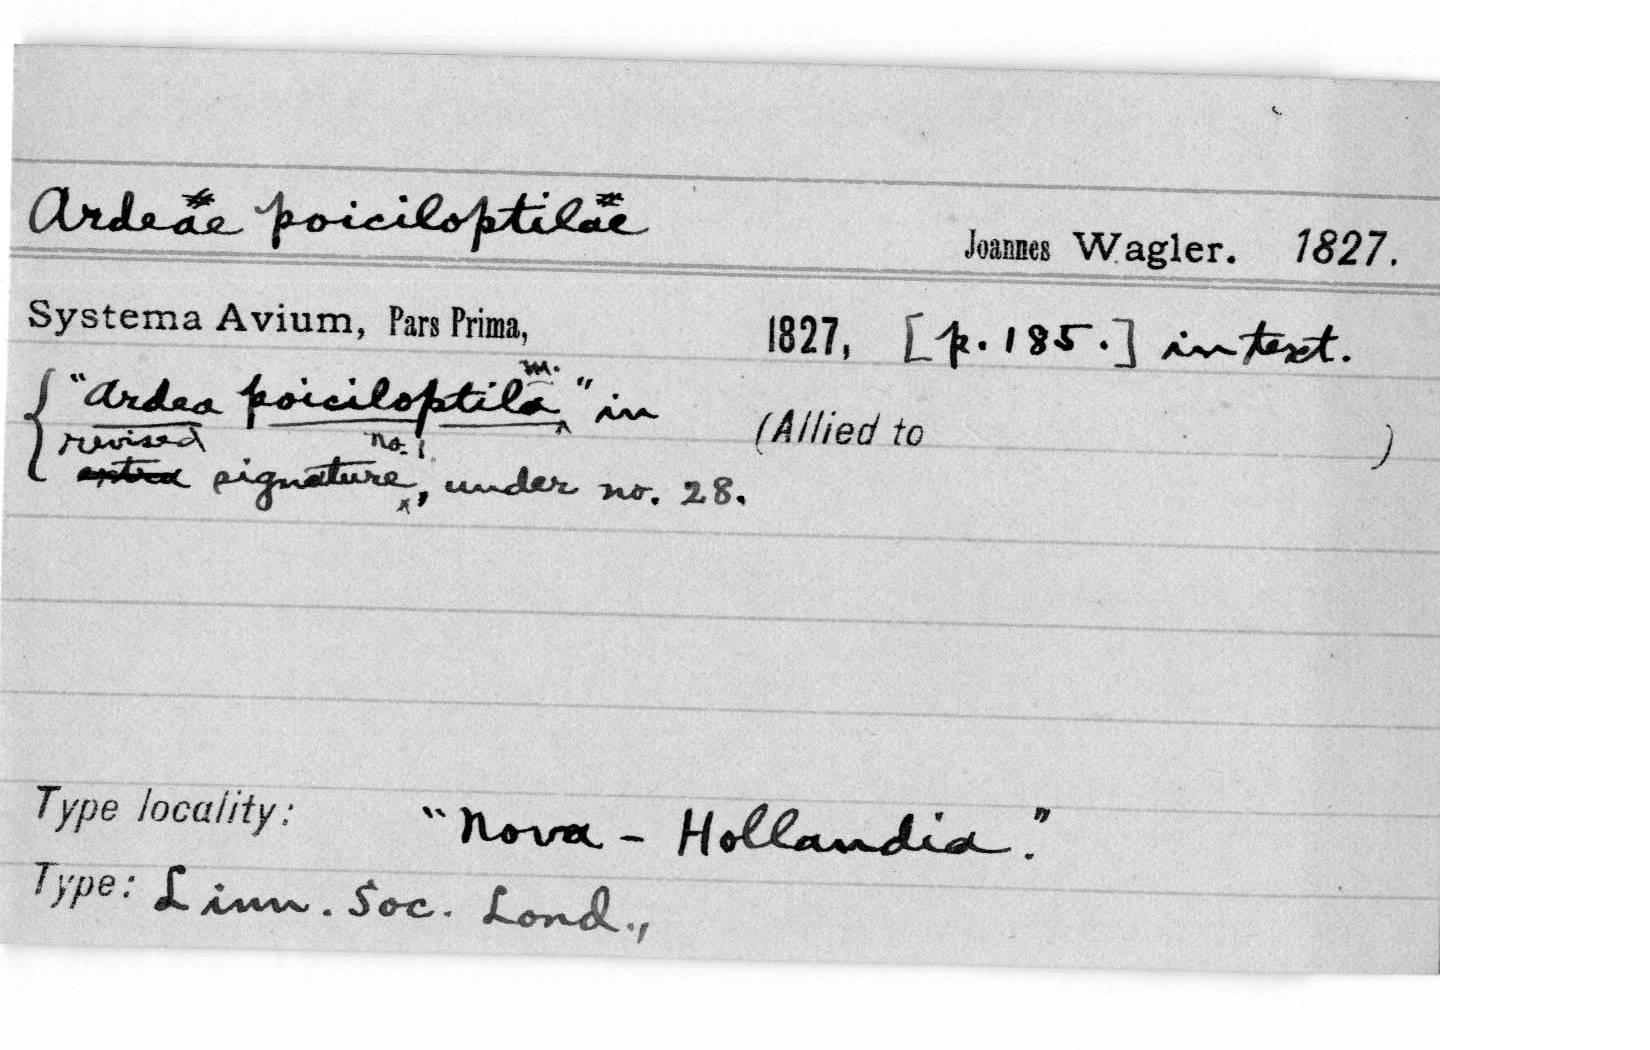 Ardeae poiciloptilae
Joannes Wagler. 1827.
Systema Avium, Pars Prima, 1827, [p. 185.] in text.
{"Ardea poiciloptila m." in
revised no. 1.
extra signature, under no. 28.
(Allied to )
Type locality: "Nova-Hollandia."
Type: Linn. Soc. Lond.,